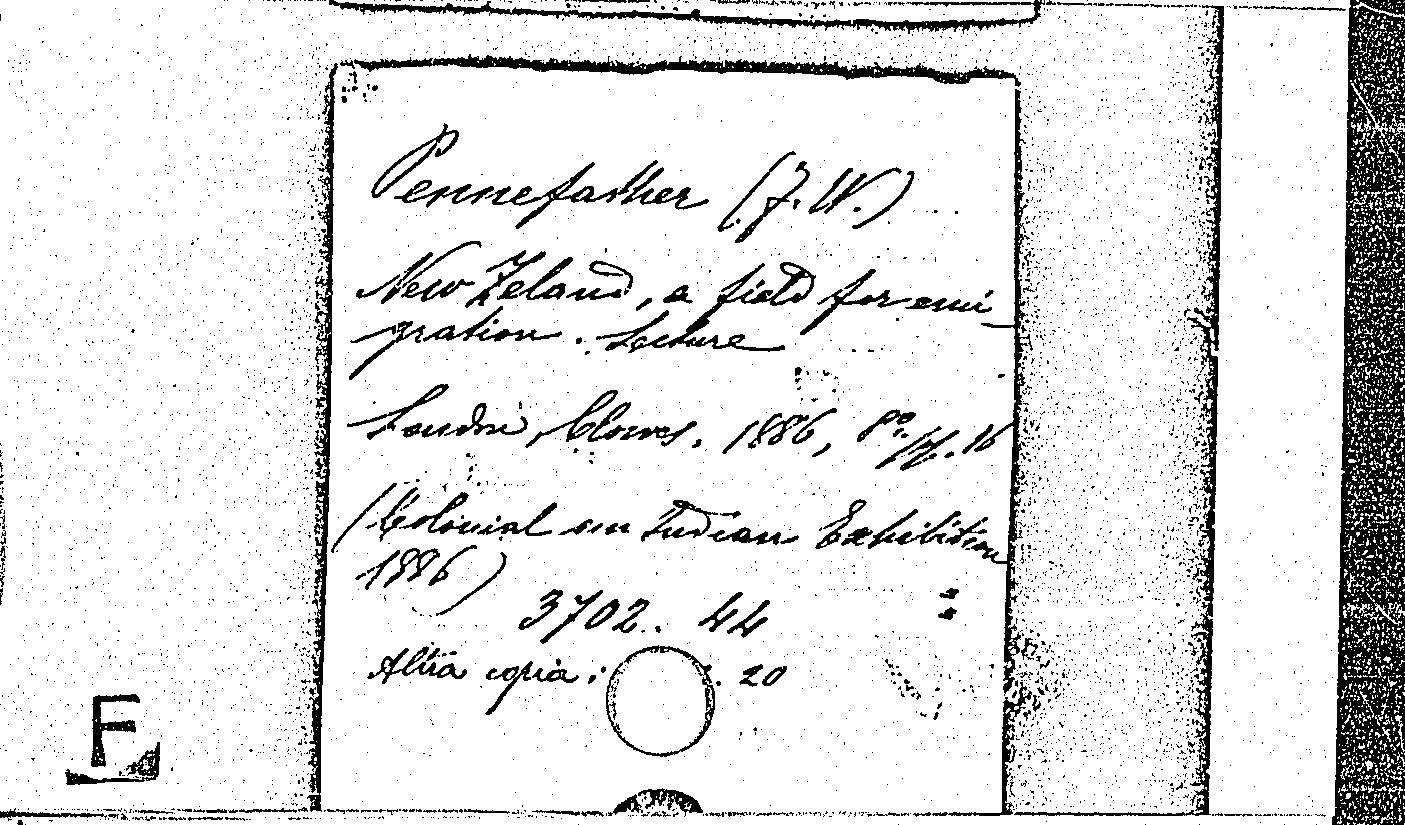 Pennefather (F. W.)
New Zeland, a field for emi
gration. Lecture
London, Clowes, 1886, 8º, pp. 16
(Colonial em Indian Exhibition
1886)
3702. 44
Altra copia: . 20
F